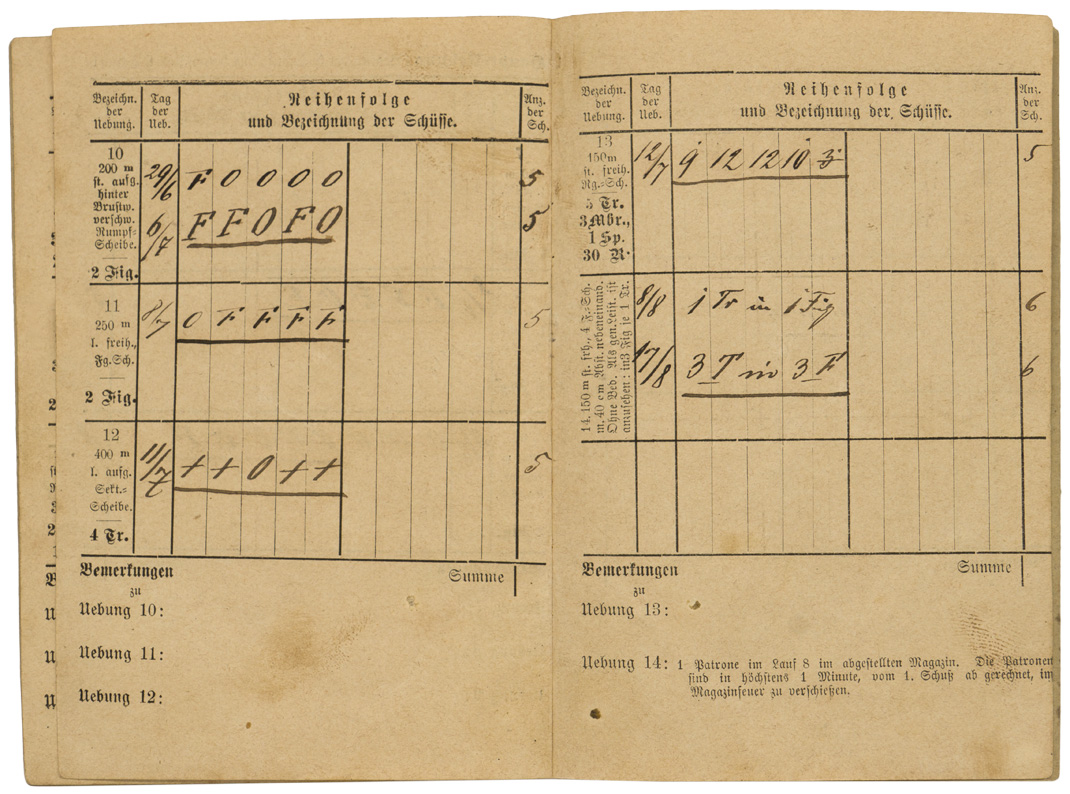 Bezeichn. der Uebung.
Tag der Ueb.
Reihenfolge
und Bezeichnung der Schüsse.
Anz. der Sch.
10
200 m
st. aufg.
hinter
Brustw.
verschw.
Rumpf=
Scheibe.
2 Fig.
29/6 F 0 0 0 0 5
6/7 F F 0 F 0 5
11
250 m
l. freih.,
Fg.Sch.
2 Fig.
8/7 0 F F F F 5
12
400 m
l. aufg.
Sekt.=
Scheibe.
4 Tr.
11/7 + + 0 + + 5
Bemerkungen
zu
Summe
Uebung 10:
Uebung 11:
Uebung 12:
Bezeichn. der Uebung.
Tag der Ueb.
Reihenfolge
und Bezeichnung der Schüsse.
Anz. der Sch.
13
150m
st. freih.
Rg.=Sch.
5 Tr.
3 Mbr.,
1 Sp.
30 R.
12/7 9 12 12 10 3 5
14. 150 m st. frh., 4 F.=Sch.
m. 40 cm Abst. nebeneinand.
Ohne Bed. Als gen.Leist. ist
anzusehen: in 3 Fig je 1 Tr.
8/8 1 Tr in 1 Fig 6
17/8 3 T in 3 F 6
Bemerkungen
zu
Summe
Uebung 13:
Uebung 14: 1 Patrone im Lauf 8 im abgestellten Magazin. Die Patronen
sind in höchstens 1 Minute, vom 1. Schuß ab gerechnet, im
Magazinfeuer zu verschießen.